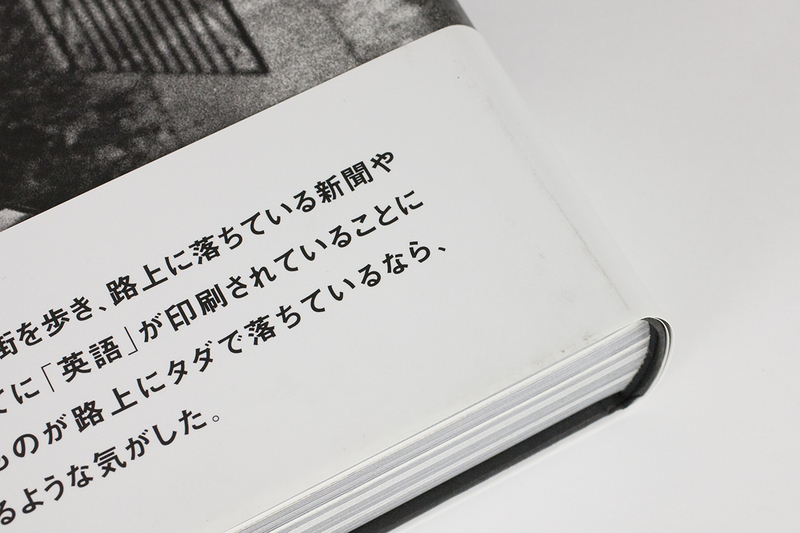 街を歩き、路上に落ちている新聞や
てに「英語」が印刷されていることに
ものが路上にタダで落ちているなら、
るような気がした。